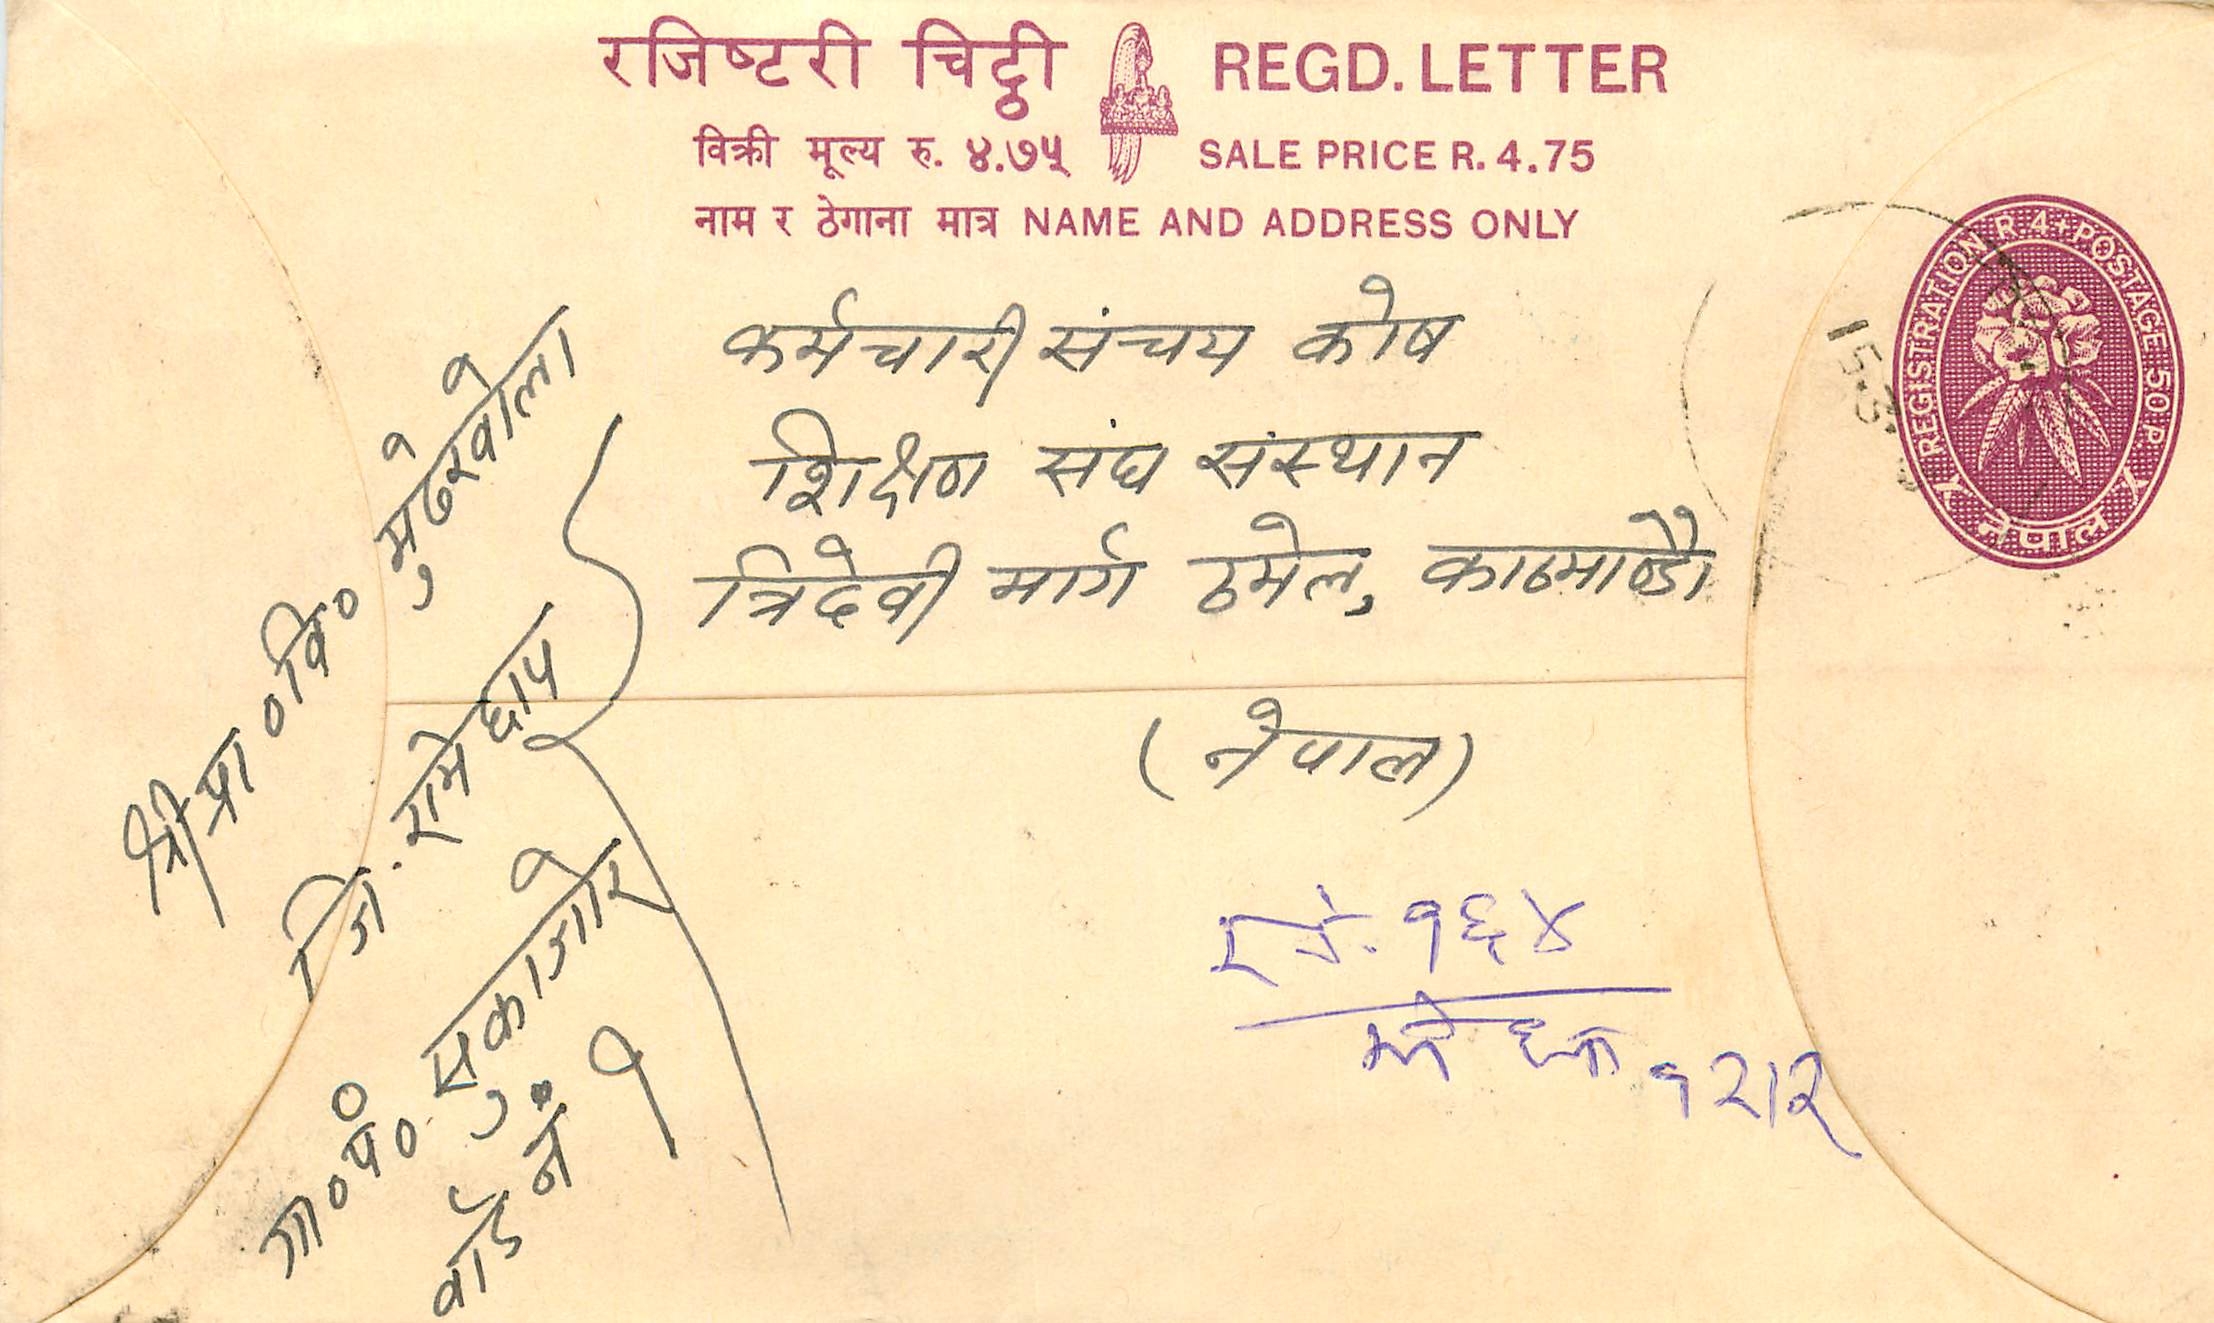 रजिष्टरी चिट्ठी REGD. LETTER
विक्री मूल्य रु. ४.७५ SALE PRICE R. 4.75
नाम र ठेगाना मात्र NAME AND ADDRESS ONLY
REGISTRATION R. 4 + POSTAGE 50 P.
नेपाल
15.3.
कर्मचारी संचय कोष
शिक्षण संघ संस्थान
त्रिदेवी मार्ग ठमेल, काठमाण्डौ
(नेपाल)
श्री प्रा०वि० मुढेखोला
जि. रामेछाप
गा०पं० सुकाजोर
वार्ड नं १
१६४
१२।२